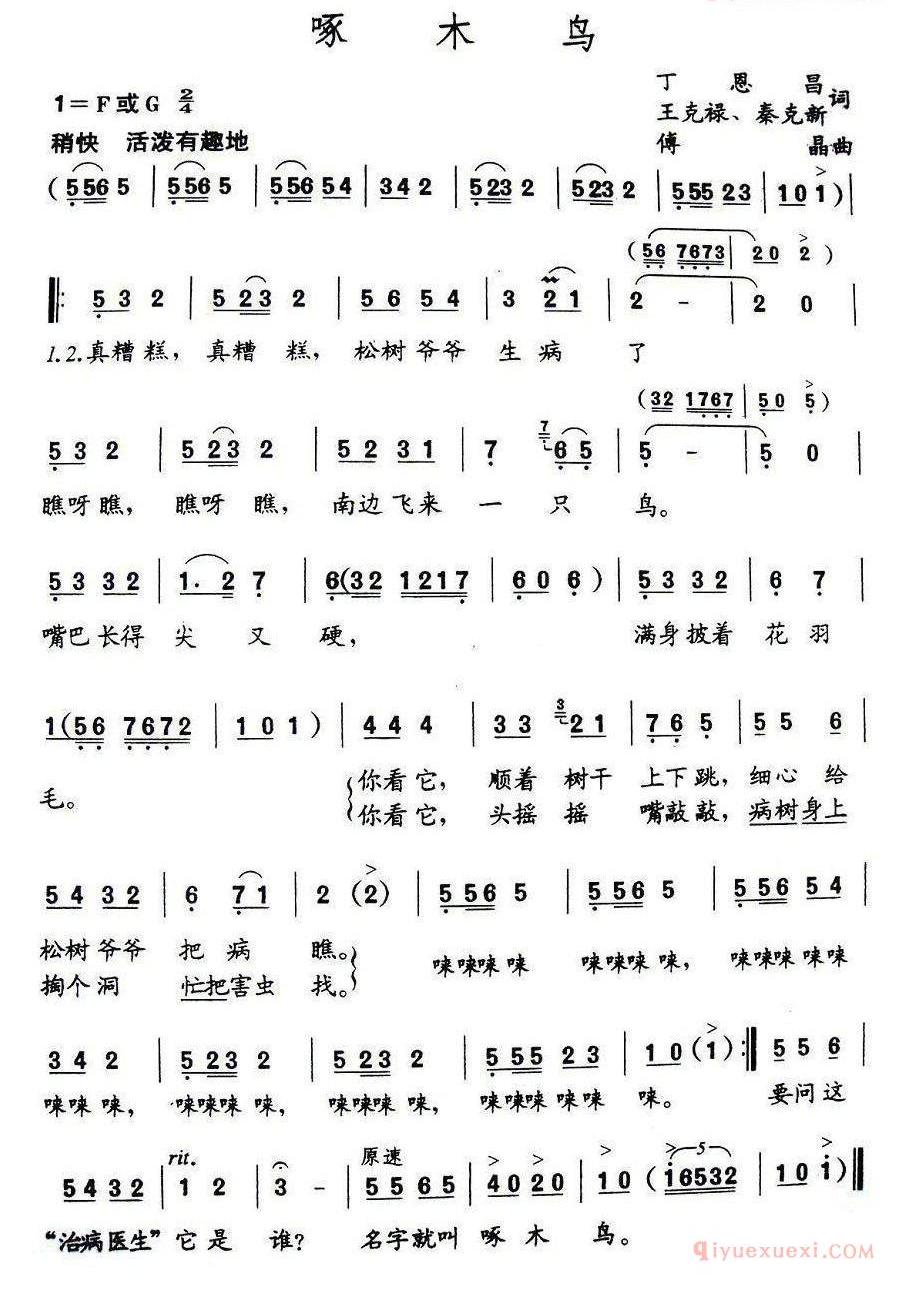 啄木鸟
丁恩昌
1=F或G 2/4
王克禄、秦克新 词
稍快 活泼有趣地
傅晶曲
( 5 5 6 5 | 5 5 6 5 | 5 5 6 5 4 | 3 4 2 | 5 2 3 2 | 5 2 3 2 | 5 5 5 2 3 | 1 0 1 ) |
( 5 6 7 6 7 3 | 2 0 2 )
5 3 2 | 5 2 3 2 | 5 6 5 4 | 3 2 1 | 2 - | 2 0 |
1.2.真糟糕，真糟糕，松树爷爷生病了
( 3 2 1 7 6 7 | 5 0 5 )
5 3 2 | 5 2 3 2 | 5 2 3 1 | 7 7 6 5 | 5 - | 5 0 |
瞧呀瞧，瞧呀瞧，南边飞来一只鸟。
5 3 3 2 | 1. 2 7 | 6 ( 3 2 1 2 1 7 | 6 0 6 ) | 5 3 3 2 | 6 7 |
嘴巴长得尖又硬，满身披着花羽
1 ( 5 6 7 6 7 2 | 1 0 1 ) | 4 4 4 | 3 3 3 2 1 | 7 6 5 | 5 5 6 |
毛。你看它，顺着树干上下跳，细心给
你看它，头摇摇嘴敲敲，病树身上
5 4 3 2 | 6 7 1 | 2 ( 2 ) | 5 5 6 5 | 5 5 6 5 | 5 5 6 5 4 |
松树爷爷把病瞧。唻唻唻唻 唻唻唻唻，唻唻唻唻唻
掏个洞 忙把害虫找。
3 4 2 | 5 2 3 2 | 5 2 3 2 | 5 5 5 2 3 | 1 0 ( 1 ) :| 5 5 6 |
唻唻唻，唻唻唻唻，唻唻唻唻，唻唻唻唻唻唻。要问这
rit. 原速 5
5 4 3 2 | 1 2 | 3 - | 5 5 6 5 | 4 0 2 0 | 1 0 ( 1 6 5 3 2 | 1 0 1 ) |
“治病医生”它是谁？名字就叫啄木鸟。
qiyuexuexi.COM